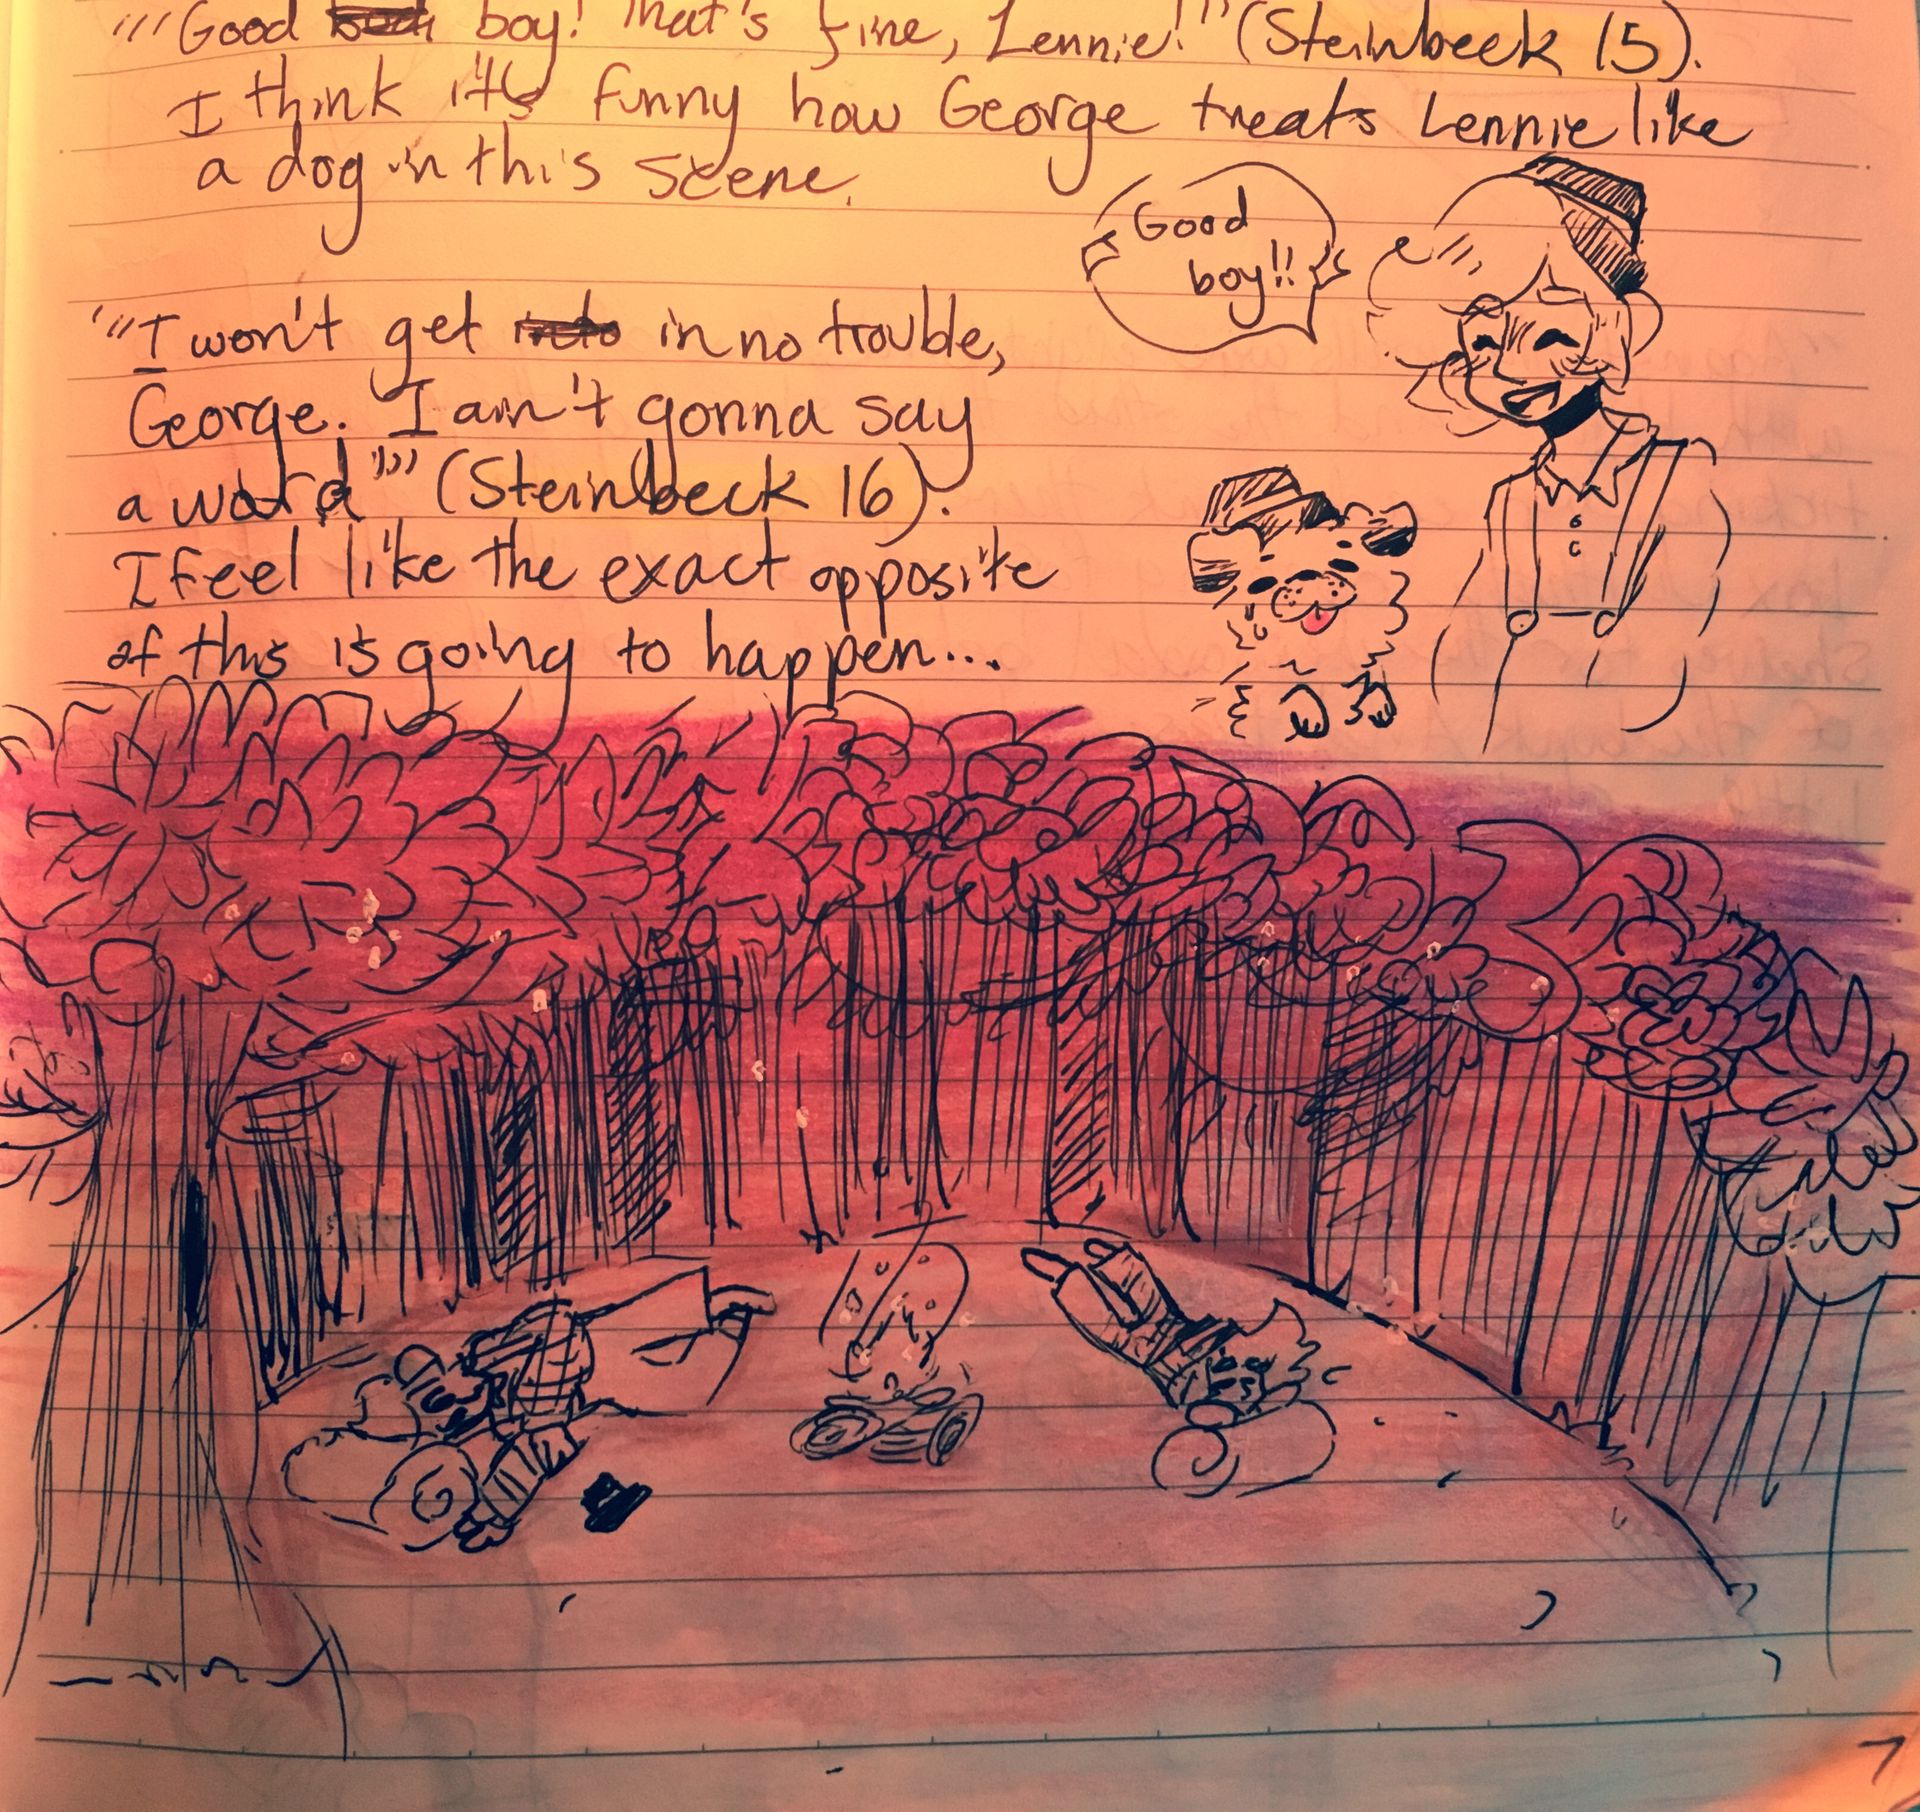 "'Good boy! That's fine, Lennie!'" (Steinbeck 15).
I think it's funny how George treats Lennie like
a dog in this scene.
Good
boy!!
"'I won't get in no trouble,
George. I ain't gonna say
a word'" (Steinbeck 16).
I feel like the exact opposite
of this is going to happen...
7